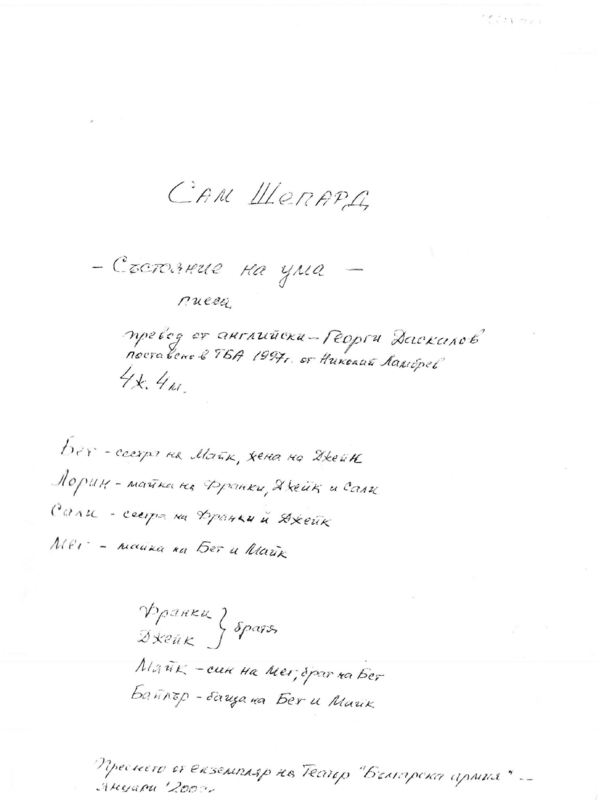 Сам Шепард
– Състояние на ума –
пиеса
превод от английски – Георги Даскалов
поставено в ТБА 1997г. от Николай Ламбрев
4ж. 4м.
Бет – сестра на Майк, жена на Джейк
Лорин – майка на Франки, Джейк и Сали
Сали – сестра на Франки и Джейк
Мег – майка на Бет и Майк
Франки } братя
Джейк
Майк – син на Мег, брат на Бет
Бейлър – баща на Бет и Майк
Преснето от екземпляр на Театър "Българска армия" –
Януари